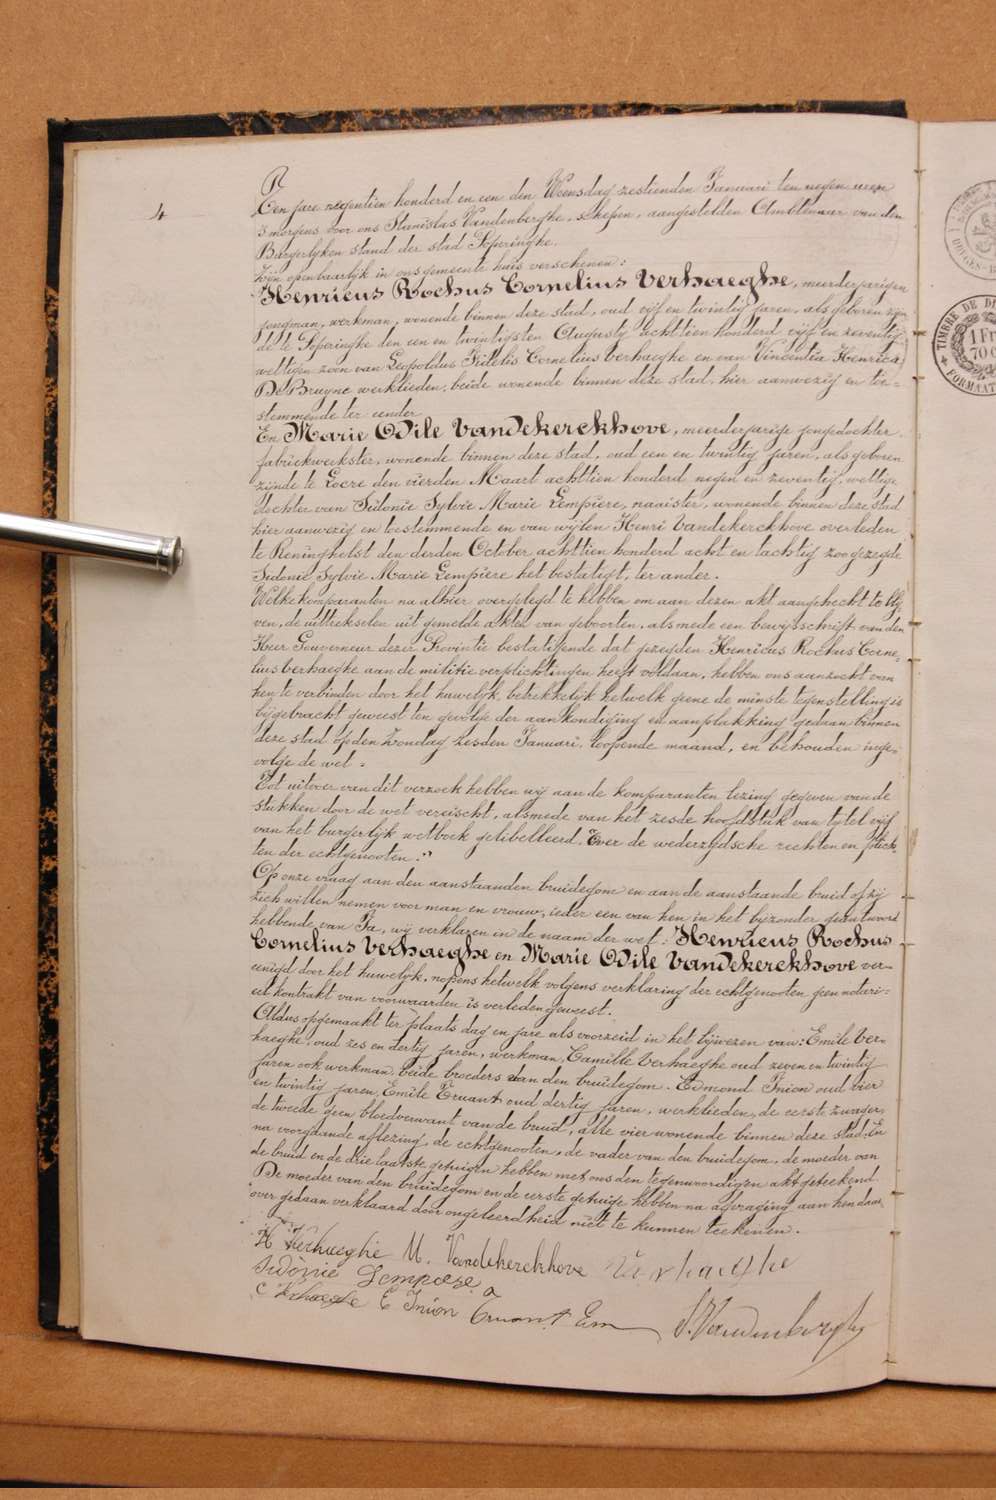 4
Een jare negentien honderd en een den Woensdag zestienden Januari ten negen uren
's morgens voor ons Stanislas Vandenberghe, schepen, aangestelden Ambtenaar van den
Burgerlyken stand der stad Poperinghe.
Zyn openbaarlyk in ons gemeente huis verschenen:
Henricus Rochus Cornelius Verhaeghe, meerderjarigen
jongman, werkman, wonende binnen deze stad, oud vyf en twintig jaren, als geboren zyn-
de te Poperinghe den een en twintigsten Augusty achttien honderd vyf en zeventig,
wettigen zoon van Leopoldus Cornelius Verhaeghe en van Vincentia Henrica
De Bruyne werklieden, beide wonende binnen deze stad, hier aanwezig en toe-
stemmende ter eender
En Marie Odile Vandekerckhove, meerderjarige jongedochter,
fabriekwerkster, wonende binnen deze stad, oud een en twintig jaren, als geboren
zynde te Locre den vierden Maart achttien honderd negen en zeventig, wettige
dochter van Sidonie Sylvie Marie Lempiere, naaister, wonende binnen deze stad
hier aanwezig en toestemmende en van wylen Henri Vandekerckhove overleden
te Reninghelst den derden October achttien honderd acht en tachtig zoo gezegde
Sidonie Sylvie Marie Lempiere het bestatigt, ter ander.
Welke komparanten na alhier overgelegd te hebben om aan dezen akt aangehecht te bly-
ven, de uittrekselen uit gemelde akten van geboorten, alsmede een bewysschrift van den
Heer Gouverneur dezer Provintie bestatigende dat gezegden Henricus Rochus Corne-
lius Verhaeghe aan de militie verplichtingen heeft voldaan, hebben ons aanzocht van
hen te verbinden door het huwelyk, betrekkelyk hetwelk geene de minste tegenstelling is
bygebracht geweest ten gevolge der aankondiging en aanplakking gedaan binnen
deze stad op den Zondag zesden Januari, loopende maand, en behouden inge-
volge de wet.
Tot uitvoer van dit verzoek hebben wy aan de komparanten lezing gegeven van de
stukken door de wet vereischt, alsmede van het zesde hoofdstuk van tytel vyf
van het burgerlyk wetboek gelibelleerd "Over de wederzydsche rechten en plich-
ten der echtgenooten."
Op onze vraag aan den aanstaanden bruidegom en aan de aanstaande bruid of zy
zich willen nemen voor man en vrouw, ieder een van hen in het byzonder geantwoord
hebbende van Ja, wy verklaren in de naam der wet: Henricus Rochus
Cornelius Verhaeghe en Marie Odile Vandekerckhove ver-
eenigd door het huwelyk, nopens hetwelk volgens verklaring der echtgenooten geen notari-
eel kontrakt van voorwaarden is verleden geweest.
Aldus opgemaakt ter plaats dag en jare als voorzeid in het bywezen van: Emile Ver-
haeghe, oud zes en dertig jaren, werkman, Camille Verhaeghe oud zeven en twintig
jaren ook werkman, beide broeders van den bruidegom. Edmond Inion oud vier
en twintig jaren, Emile Truant oud dertig jaren, werklieden, de eerste zwager,
de tweede geen bloedverwant van de bruid, alle vier wonende binnen deze stad. En
na voorgaande aflezing, de echtgenooten, de vader van den bruidegom, de moeder van
de bruid en de drie laatste getuigen hebben met ons den tegenwoordigen akt geteekend.
De moeder van den bruidegom en de eerste getuige hebben na afvraging aan hen daar-
over gedaan verklaard door ongeleerdheid niet te kunnen teekenen.
H Verhaeghe M. Vandekerckhove Verhaeghe
Sidonie Lempiere
C Verhaeghe E Inion Truant Em S. Vandenberghe
TIMBRE DE DI
1 Fr
70 C
FORMAAT